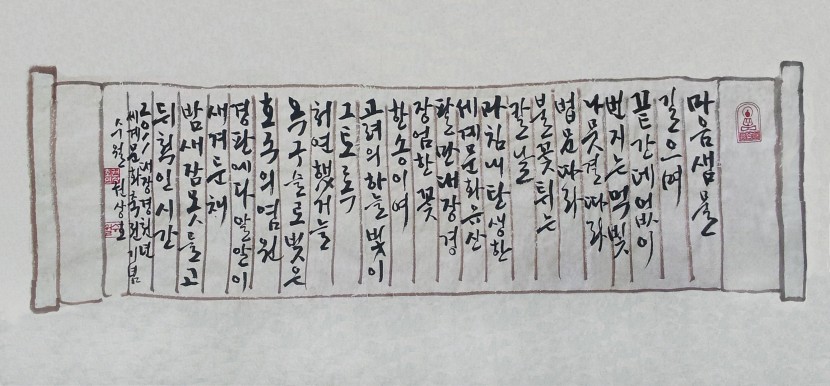 마음샘물
길으며
끝간데없이
번지는먹빛
나뭇결따라
법문따라
불꽃튀는
칼날
마침내탄생한
세계문화유산
팔만대장경
장엄한꽃
한송이여
고려의하늘빛이
그토록
처연했거늘
옥구슬로빚은
호국의염원
경판에다알알이
새겨둔채
밤새잠못들고
뒤척인시간
2011대장경천년
세계문화축전기념
수월 권상호